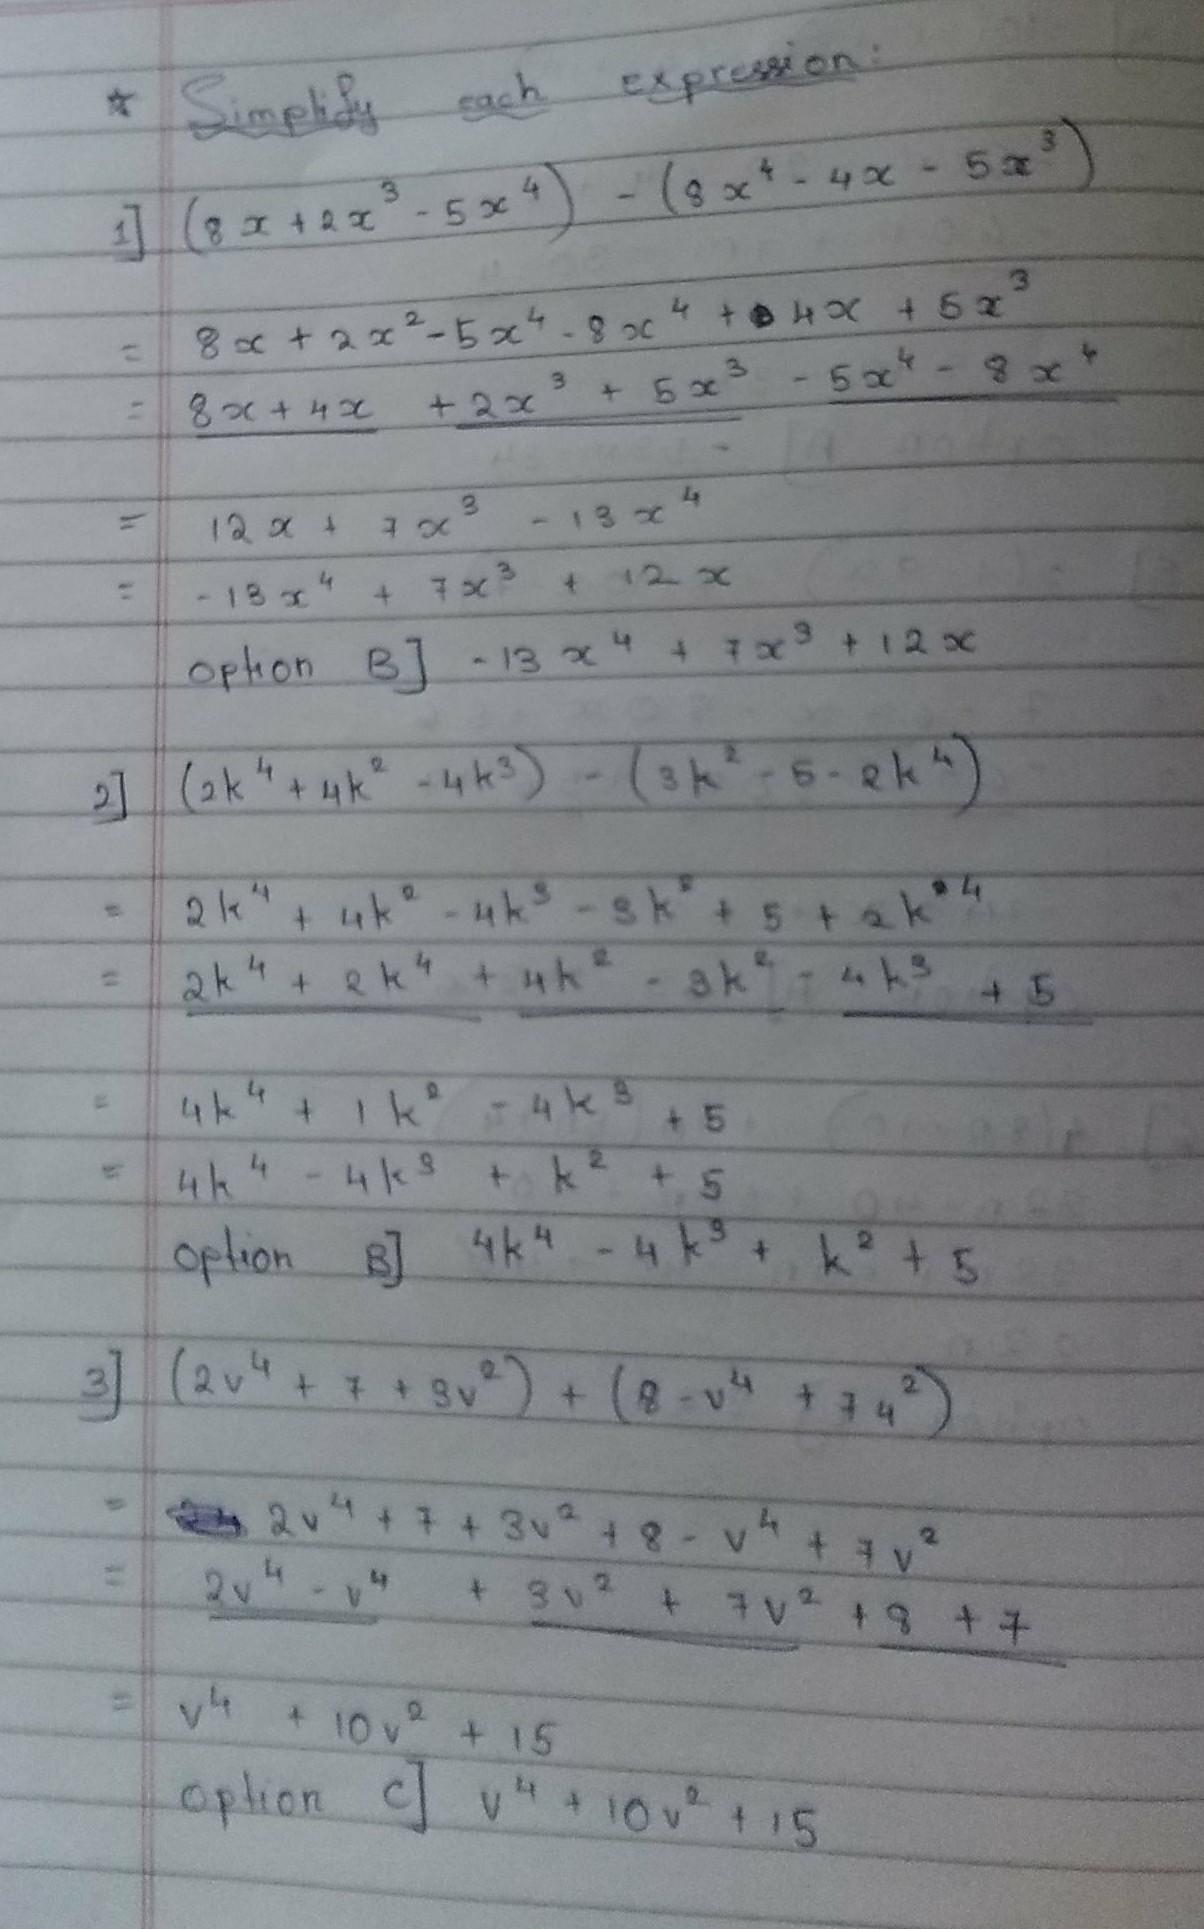 * Simplify each expression:
1] (8x + 2x³ - 5x⁴) - (8x⁴ - 4x - 5x³)
= 8x + 2x² - 5x⁴ - 8x⁴ + 4x + 5x³
= 8x + 4x + 2x³ + 5x³ - 5x⁴ - 8x⁴
= 12x + 7x³ - 13x⁴
= -13x⁴ + 7x³ + 12x
option B] -13x⁴ + 7x³ + 12x
2] (2k⁴ + 4k² - 4k³) - (3k² - 5 - 2k⁴)
= 2k⁴ + 4k² - 4k³ - 3k² + 5 + 2k⁴
= 2k⁴ + 2k⁴ + 4k² - 3k² - 4k³ + 5
= 4k⁴ + 1k² - 4k³ + 5
= 4k⁴ - 4k³ + k² + 5
option B] 4k⁴ - 4k³ + k² + 5
3] (2v⁴ + 7 + 3v²) + (8 - v⁴ + 74²)
= 2v⁴ + 7 + 3v² + 8 - v⁴ + 7v²
= 2v⁴ - v⁴ + 3v² + 7v² + 8 + 7
= v⁴ + 10v² + 15
option C] v⁴ + 10v² + 15